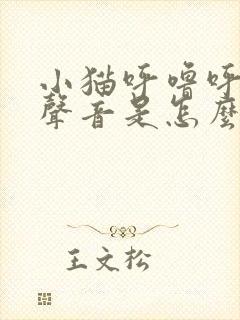 小猫呼噜呼
聲音是怎麼
王文松